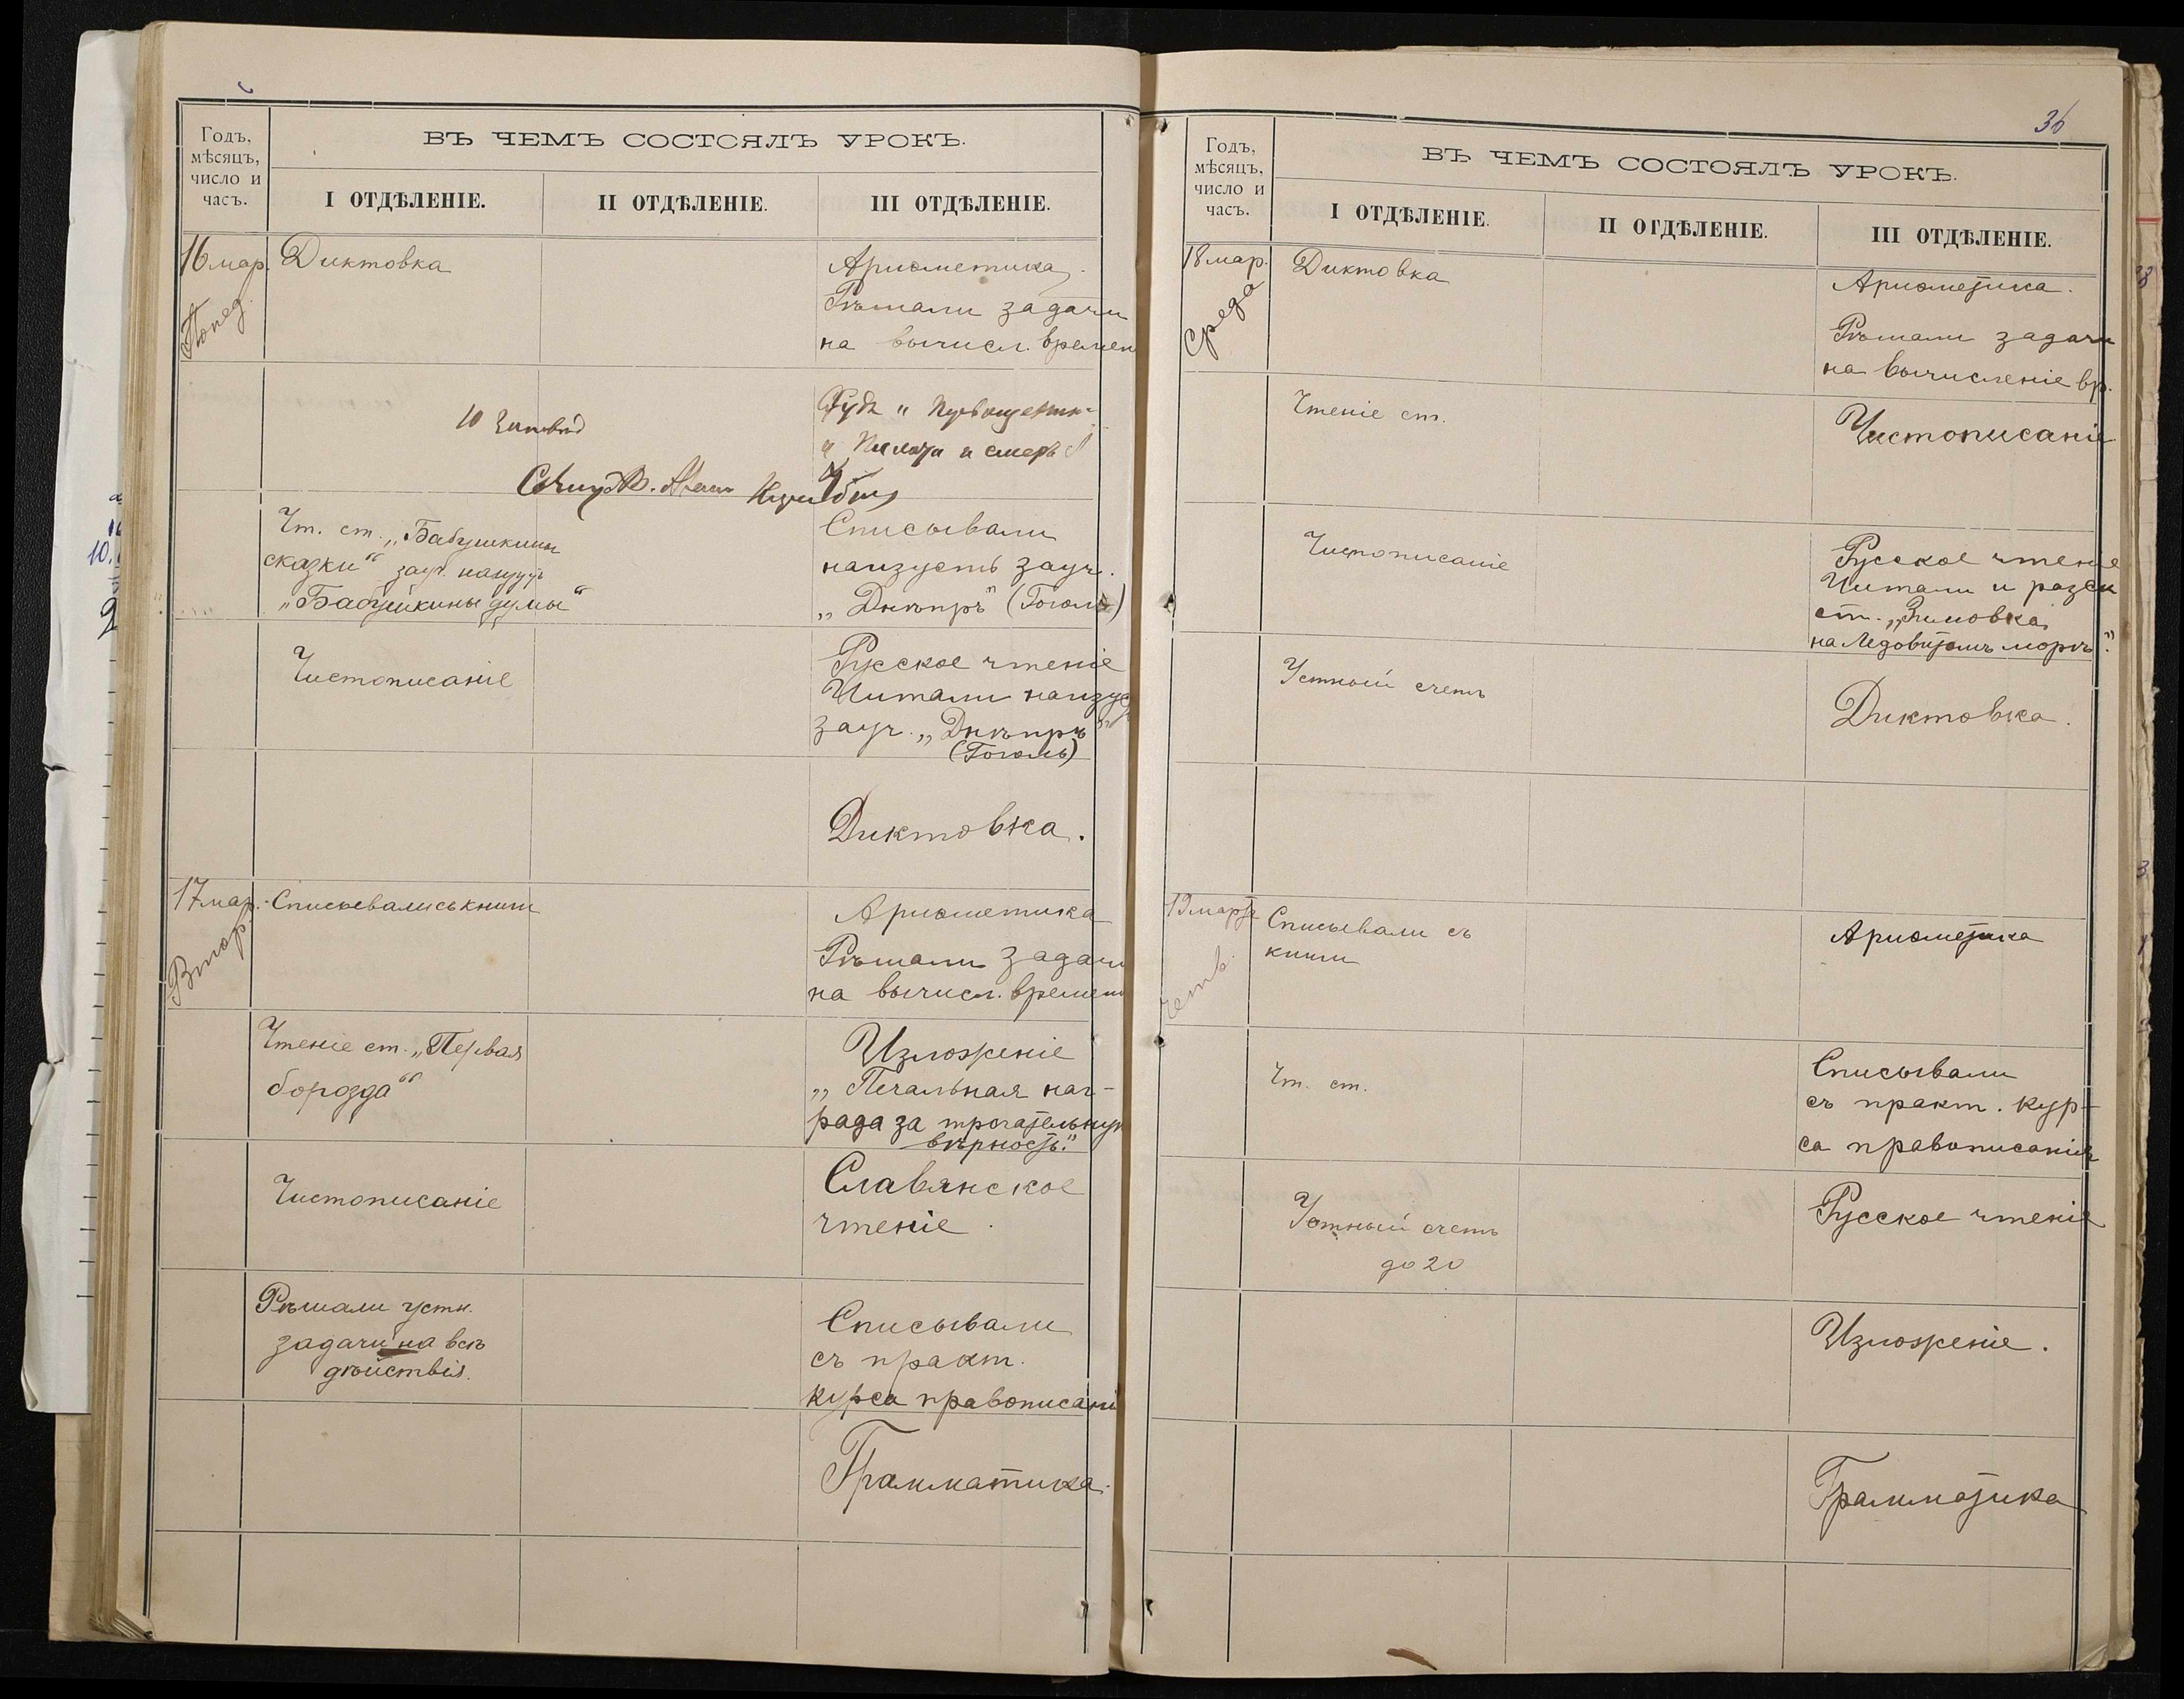 Годъ,
мѣсяцъ,
число и
часъ.
ВЪ ЧЕМЪ СОСТОЯЛЪ УРОКЪ.
I ОТДѢЛЕНІЕ.
II ОТДѢЛЕНІЕ.
III ОТДѢЛЕНІЕ.
16 мар.
Понед.
Диктовка
Ариѳметика.
Рѣшали задачи
на вычисл. времен
10 Заповѣд
Судъ
и смерть
Чт. ст. „Бабушкины
сказки“ зауч. наизустъ
„Бабушкины думы“
Списывали
наизусть зауч.
„Днѣпръ“ (Гоголь)
Чистописаніе
Русское чтеніе
Читали наизуст
зауч. „Днѣпръ“
(Гоголь)
Диктовка.
17 мар.
Втор.
Списывали съ книги
Ариѳметика
Рѣшали задачи
на вычисл. времени
Чтеніе ст. „Первая
борозда“
Изложеніе
„Печальная наг-
рада за трогательную
вѣрность."
Чистописаніе
Славянское
чтеніе.
Рѣшали устн.
задачи на всѣ
дѣйствія.
Списывали
съ практ.
курса правописані
Грамматика.
36
Годъ,
мѣсяцъ,
число и
часъ.
ВЪ ЧЕМЪ СОСТОЯЛЪ УРОКЪ.
I ОТДѢЛЕНІЕ.
II ОТДѢЛЕНІЕ.
III ОТДѢЛЕНІЕ.
18 мар.
Среда
Диктовка
Ариѳметика.
Рѣшали задачи
на вычисленіе вр.
Чтеніе ст.
Чистописаніе
Чистописаніе
Русское чтеніе
Читали и разск
ст. „Зимовка
на Ледовитомъ морѣ."
Устный счетъ
Диктовка.
19 марта
четв.
Списывали съ
книги
Ариѳметика
Чт. ст.
Списывали
съ практ. кур-
са правописанія
Устный счетъ
до 20
Русское чтеніе
Изложеніе.
Грамматика